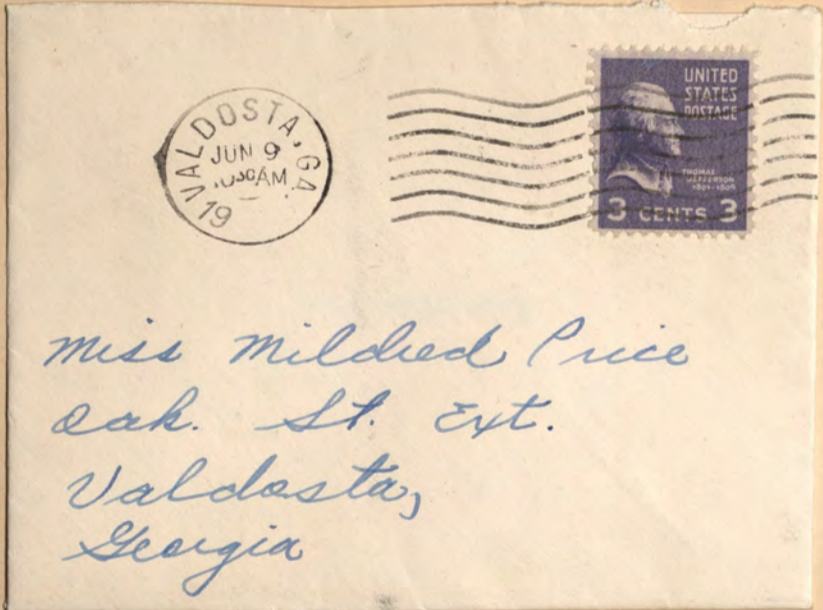 VALDOSTA, GA.
JUN 9
AM
19
UNITED
STATES
POSTAGE
THOMAS
JEFFERSON
1801-1809
3 CENTS 3
Miss Mildred Price
Oak. St. Ext.
Valdosta,
Georgia